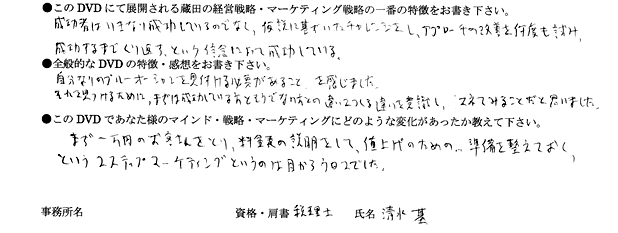 ●このDVDにて展開される蔵田の経営戦略・マーケティング戦略の一番の特徴をお書き下さい。
成功者はいきなり成功しているのでなし、仮説に基いたチャレンジをし、アプローチの改善を何度も試み、
成功するまでくり返す、という信念において成功している。
●全般的なDVDの特徴・感想をお書き下さい。
自分なりのブルーオーシャンを見付ける必要があること、を感じました。
それを見つけるために、まずは成功している方とそうでない方との違い を意識し、マネてみることだと思いました。
●このDVDであなた様のマインド・戦略・マーケティングにどのような変化があったか教えて下さい。
まず一万円のお客さんをとり、料金表の説明をして、値上げのための...準備を整えておく、
という2ステップマーケティングというのは目からウロコでした。
事務所名 資格・肩書 税理士 氏名 清水 基